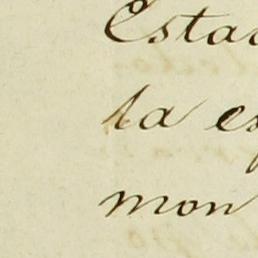 Esta
la es
mon